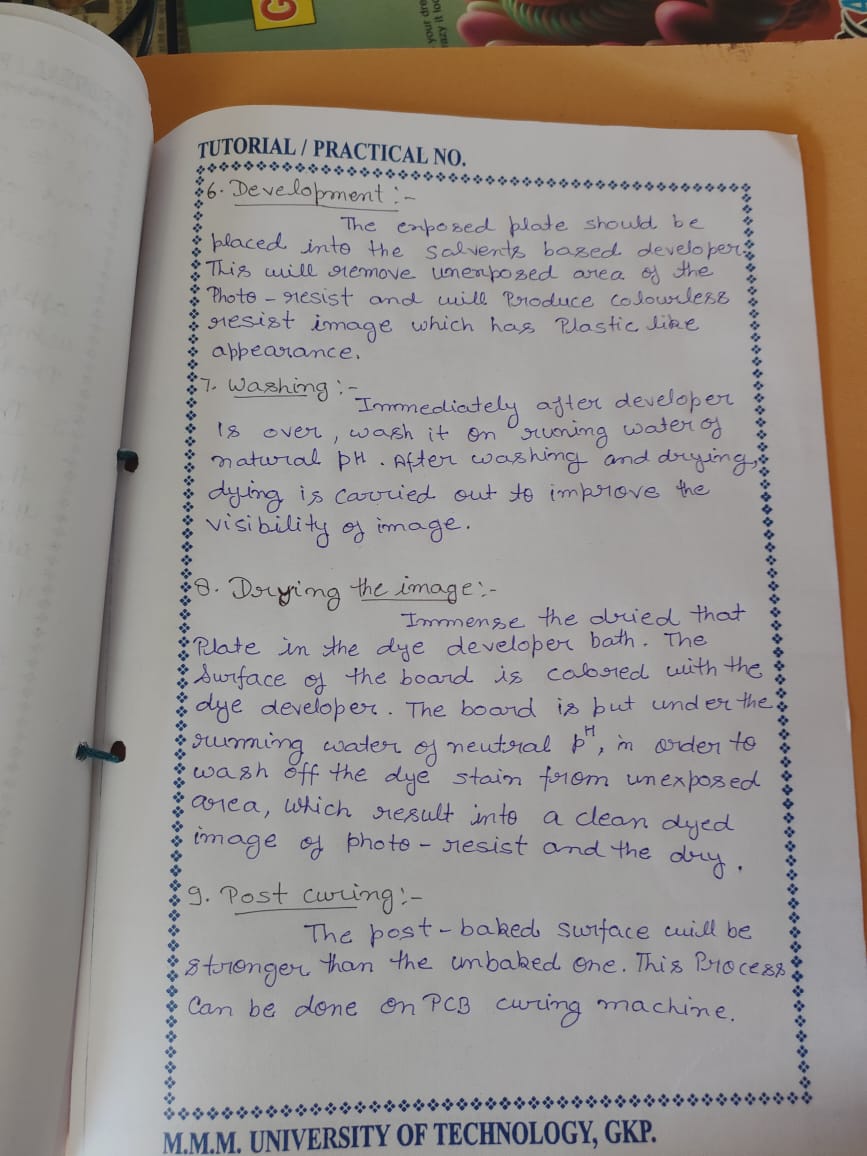 G
your dre
azy it loo
TUTORIAL / PRACTICAL NO.
6. Development :-
The exposed plate should be
placed into the Salvents based developer.
This will remove unexposed area of the
Photo - resist and will Produce colourless
resist image which has Plastic like
appearance.
7. Washing :-
Immediately after developer
Is over, wash it on runing water of
natural pH. After washing and drying,
dying is carried out to improve the
visibility of image.
8. Drying the image :-
Immense the dried that
Plate in the dye developer bath. The
Surface of the board is colored with the
dye developer. The board is put under the
running water of neutral pH, in order to
wash off the dye stain from unexposed
area, which result into a clean dyed
image of photo - resist and the dry.
9. Post curing :-
The post - baked surface will be
stronger than the unbaked one. This Process
Can be done on PCB curing machine.
M.M.M. UNIVERSITY OF TECHNOLOGY, GKP.